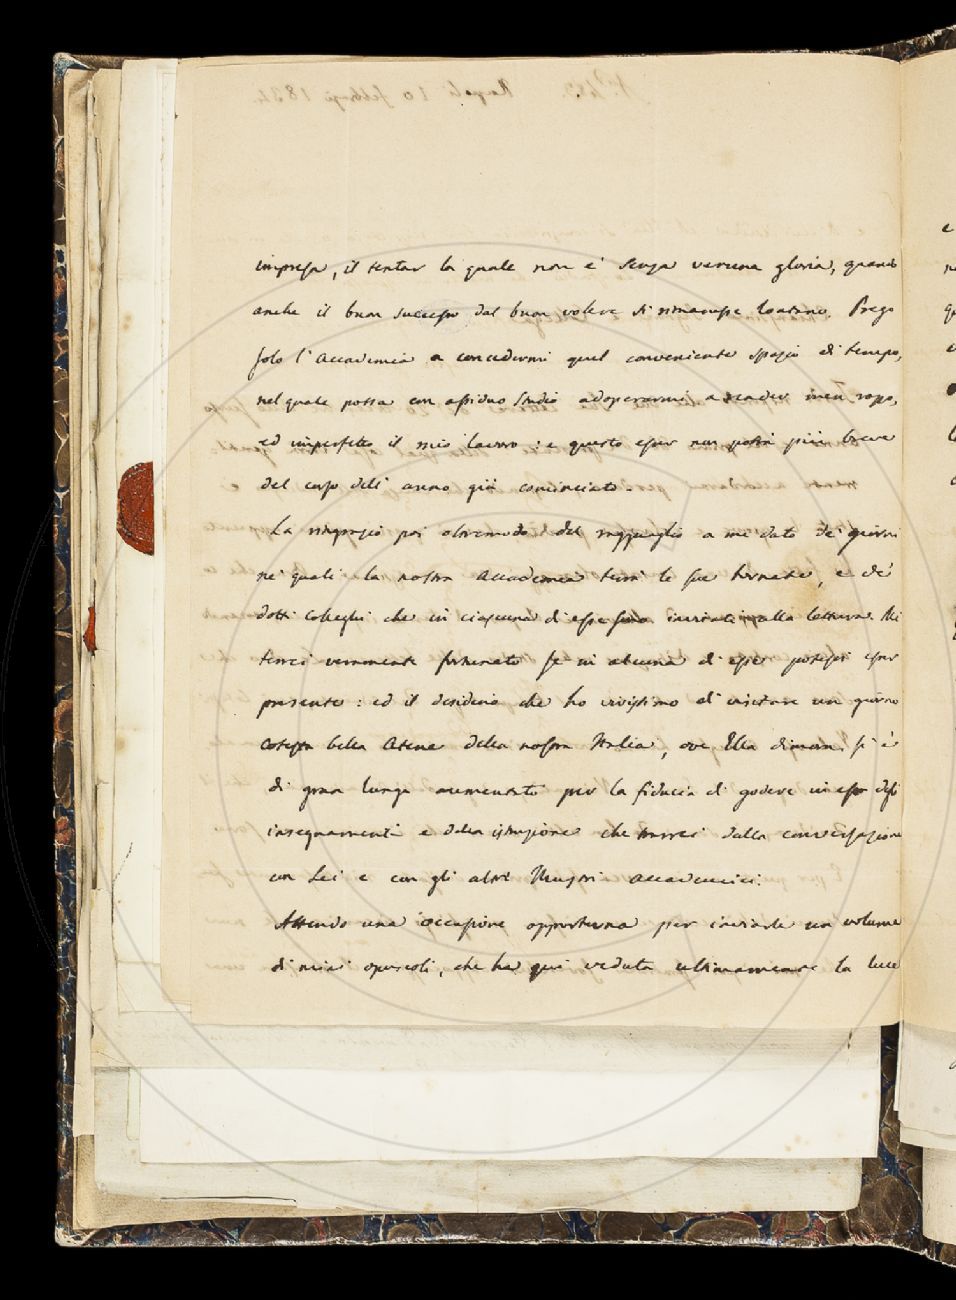 impresa, il tentar la quale non e' senza veruna gloria, quando
anche il buon successo dal buon volere si rimanesse lontano. Prego
solo l'Accademia a concedermi quel conveniente spazio di tempo,
nel quale possa con assiduo studio adoperarmi a render men rozzo,
ed imperfetto il mio lavoro: e questo esser non potrà più breve
del corso dell'anno già cominciato.
La ringrazio poi oltremodo del ragguaglio a me dato de' giorni
ne' quali la nostra Accademia terrà le sue tornate, e de'
dotti Colleghi che in ciascuna di esse sono invitati alla lettura. Mi
terrei veramente fortunato se in alcuna di esse potessi esser
presente: ed il desiderio che ho vivissimo di visitare un giorno
cotesta bella Atene della nostra Italia, ove Ella dimora, si è
di gran lunga aumentato per la fiducia di godere in essa degli
insegnamenti e della istruzione che trarrei dalla conversazione
con Lei e con gli altri Illustri Accademici.
Attendo una occasione opportuna per inviarle un volume
di miei opuscoli, che ha quì veduta ultimamente la luce